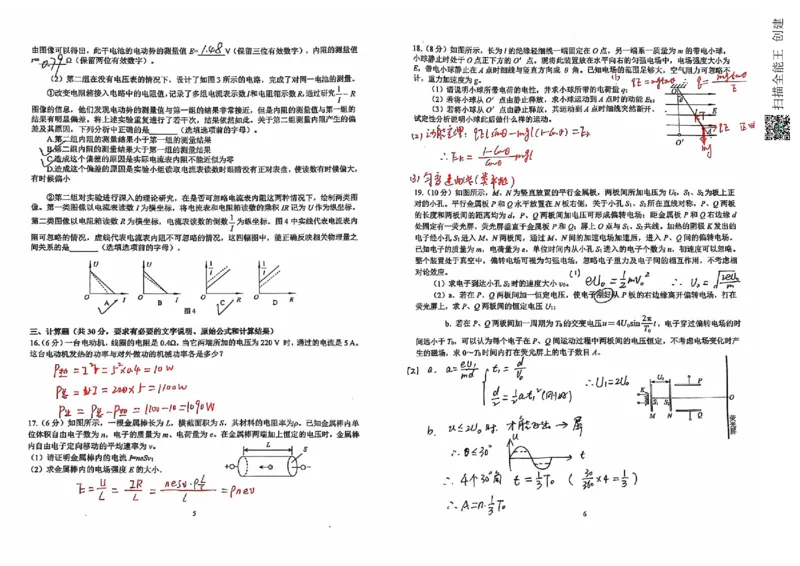 由图像可以得出，此干电池的电动势的测量值 E=1.48 V（保留三位有效数字），内阻的测量值
r=0.79 Ω（保留两位有效数字）。
（2）第二组在没有电压表的情况下，设计了如图3所示的电路，完成了对同一电池的测量。
①改变电阻箱接入电路中的电阻值，记录了多组电流表示数I和电阻箱示数R，通过研究 1/I — R
图像的信息，他们发现电动势的测量值与第一组的结果非常接近，但是内阻的测量值与第一组的
结果有明显偏差。将上述实验重复进行了若干次，结果依然如此。关于第二组测量内阻产生的偏
差及其原因，下列分析中正确的是______（选填选项前的字母）。
A.第二组内阻的测量结果小于第一组的测量结果
B.第二组内阻的测量结果大于第一组的测量结果
C.造成这个偏差的原因是实际电流表内阻不能近似为零
D.造成这个偏差的原因是实验小组读取电流表读数时眼睛没有正对表盘，使读数有时候偏大，
有时候偏小
②第二组对实验进行深入的理论研究，在是否可忽略电流表内阻这两种情况下，绘制两类图
像。第一类图像以电流表读数 I 为横坐标，将电流表和电阻箱读数的乘积 IR 记为 U 作纵坐标，
第二类图像以电阻箱读数 R 为横坐标，电流表读数的倒数 1/I 为纵坐标。图4中实线代表电流表内
阻可忽略的情况，虚线代表电流表内阻不可忽略的情况，这四幅图中，能正确反映相关物理量之
间关系的是______（选填选项前的字母）。
U U 1/I 1/I
O A I O B I O C R O D R
图4
三、计算题（共30分，要求有必要的文字说明、原始公式和计算结果）
16.（6分）一台电动机，线圈的电阻是0.4Ω，当它两端所加的电压为220 V时，通过的电流是5 A。
这台电动机发热的功率与对外做功的机械功率各是多少？
P热 = I²r = 5²×0.4 = 10W
P总 = UI = 220×5 = 1100W
P出 = P总 - P热 = 1100-10 = 1090W
17.（6分）如图所示，一根金属棒长为L，横截面积为S，其材料的电阻率为ρ。已知金属棒内单
位体积自由电子数为n，电子的质量为m，电荷量为e。在金属棒两端加上恒定的电压时，金属棒
内自由电子定向移动的平均速率为v。
（1）请证明金属棒内的电流 I=neSv；
（2）求金属棒内的电场强度 E 的大小.
L S
E = U/L = IR/L = neSv·ρL/S / L = ρnev
5
18.（8分）如图所示，长为l的绝缘轻细线一端固定在O点，另一端系一质量为m的带电小球，
小球静止时处于O点正下方的O′点，现将此装置放在水平向右的匀强电场中，电场强度大小为
E，带电小球静止在A点时细线与竖直方向成θ角。已知电场的范围足够大，空气阻力可忽略不
计，重力加速度为g。
（1）请说明小球所带电荷的电性，并求小球所带的电荷量q；
（2）若将小球从O′点由静止释放，求小球运动到A点时的动能Ek；
（3）若将小球从O′点由静止释放，其运动到A点时细线突然断开，
试定性分析说明小球此后做什么样的运动。
(1) qE = mgtanθ q = mgtanθ/E
(2) 动能定理： qElsinθ - mgl(1-cosθ) = Ek
∴ Ek = 1-cosθ/cosθ mgl
(3) 匀变速曲线(类平抛)
O E T qE 正电
O′ mg
19.（10分）如图所示，M、N为竖直放置的平行金属板，两板间所加电压为U₀，S₁、S₂为板上正
对的小孔。平行金属板P和Q水平放置在N板右侧，关于小孔S₁、S₂所在直线对称，P、Q两板
的长度和两板间的距离均为d，P、Q两板间加电压可形成偏转电场；距金属板P和Q右边缘d
处固定有一荧光屏，荧光屏垂直于金属板P和Q；屏上O点与S₁、S₂共线。加热的阴极K发出的
电子经小孔S₁进入M、N两板间，通过M、N间的加速电场加速后，进入P、Q间的偏转电场。
已知电子的质量为m，电荷量为e，单位时间内从小孔S₁进入的电子个数为n，初速度可以忽略。
整个装置处于真空中，偏转电场可视为匀强电场，忽略电子重力及电子间的相互作用，不考虑相
对论效应。
（1）求电子到达小孔S₂时的速度大小v₀。
(1) eU₀ = ½mv₀² ∴ v₀ = √(2eU₀/m)
（2）a．若在P、Q两板间加一恒定电压，使电子刚好从P板的右边缘离开偏转电场，打在
荧光屏上，求P、Q两板间的恒定电压U₁；
b．若在P、Q两板间加一周期为T₀的交变电压 u = 4U₀sin 2π/T₀ t，电子穿过偏转电场的时
间远小于T₀，可以认为每个电子在P、Q间运动过程中两板间的电压恒定，不考虑电场变化时产
生的磁场，求0～T₀时间内打在荧光屏上的电子数目A。
(2) a. a = eU₁/md t₁ = d/v₀
d/2 = ½at₁²
∴U₁=2U₀
U₀ P K S₁ S₂ O M N Q 荧光屏
b. u≤2U₀ 时 → 屏
∴ θ≤30°
U t
∴ 4个30°角 t = ⅓T₀ ( 30/360 ×4 = ⅓ )
∴ A=n·⅓T₀
6
扫描全能王 创建